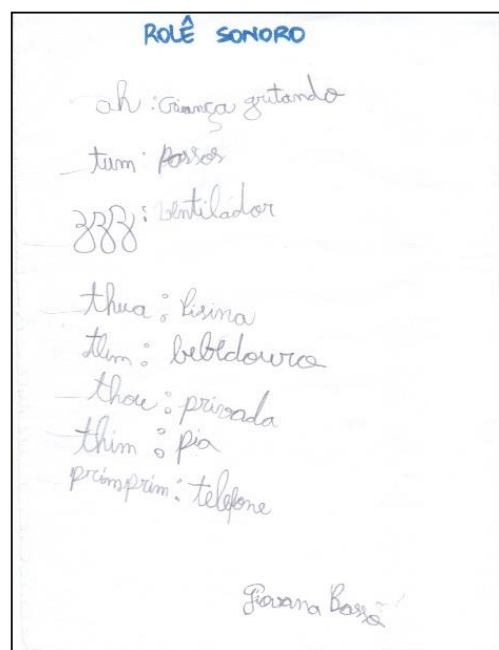 ROLÊ SONORO
ah : criança gritando
tum : passos
zzz : ventilador
thua : Pisina
tlim : bebedouro
thou : privada
thim : pia
primprim : telefone
Giovana